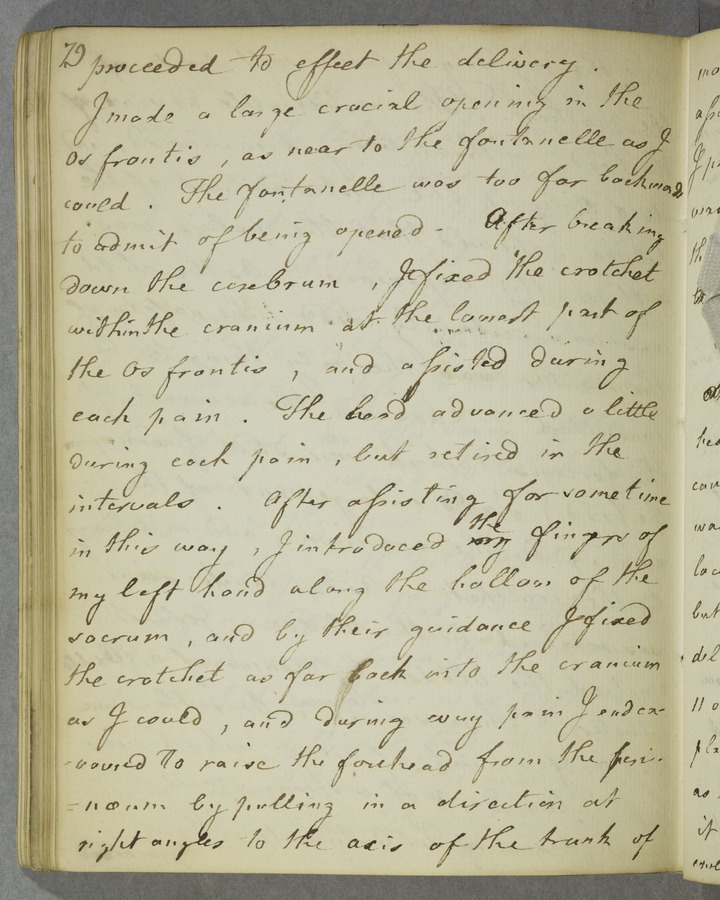 79 proceeded to effect the delivery.
I made a large crucial opening in the
Os frontis, as near to the fontanelle as I
could. The fontanelle was too far backwards
to admit of being opened - After breaking
down the cerebrum, I fixed the crotchet
within the cranium at the lowest part of
the Os frontis, and assisted during
each pain. The head advanced a little
during each pain, but retired in the
intervals. After assisting for some time
in this way, I introduced the my fingers of
my left hand along the hollow of the
sacrum, and by their guidance I fixed
the crotchet as far back into the cranium
as I could, and during every pain I endea-
-voured to raise the forehead from the peri-
=næum by pulling in a direction at
right angles to the axis of the trunk of